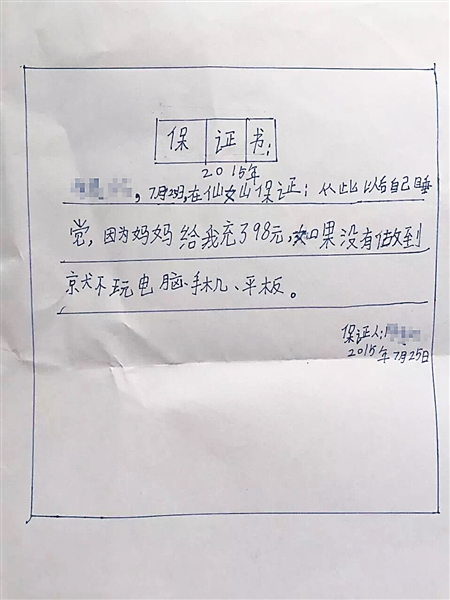 保证书:
2015年
,7月25日,在仙女山保证:从此以后自己睡
觉,因为妈妈给我充了98元,如果没有做到
就不玩电脑、手机、平板。
保证人:
2015年7月25日